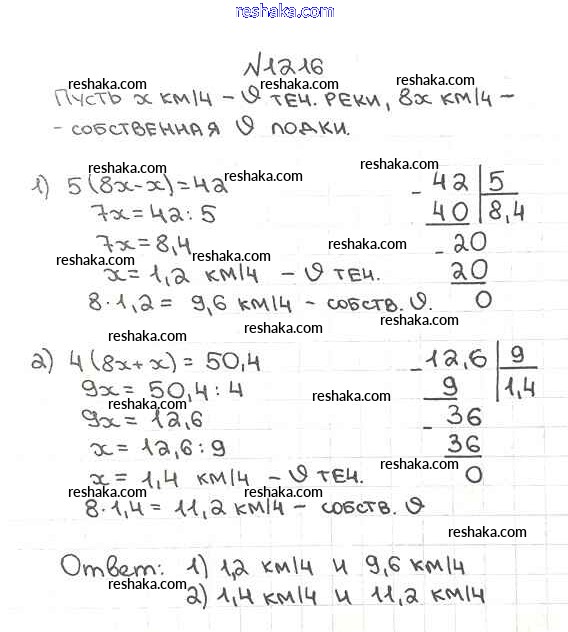 reshaka.com
№1216
reshaka.com reshaka.com
Пусть x км/ч - v теч. реки, 8x км/ч -
- собственная v лодки.
reshaka.com reshaka.com
1) 5(8x-x)=42
reshaka.com
7x=42:5
7x=8,4
reshaka.com reshaka.com
x=1,2 км/ч - v теч.
8·1,2= 9,6 км/ч - собств. v.
42 | 5
- 40 | 8,4
- 20
20
0
reshaka.com
2) 4(8x+x)=50,4
9x=50,4:4
reshaka.com reshaka.com
9x=12,6
reshaka.com
x=12,6:9
x=1,4 км/ч - v теч.
reshaka.com reshaka.com
8·1,4=11,2 км/ч - собств. v
- 12,6 | 9
9 | 1,4
- 36
36
0
reshaka.com
Ответ: 1) 1,2 км/ч и 9,6 км/ч
reshaka.com
2) 1,4 км/ч и 11,2 км/ч